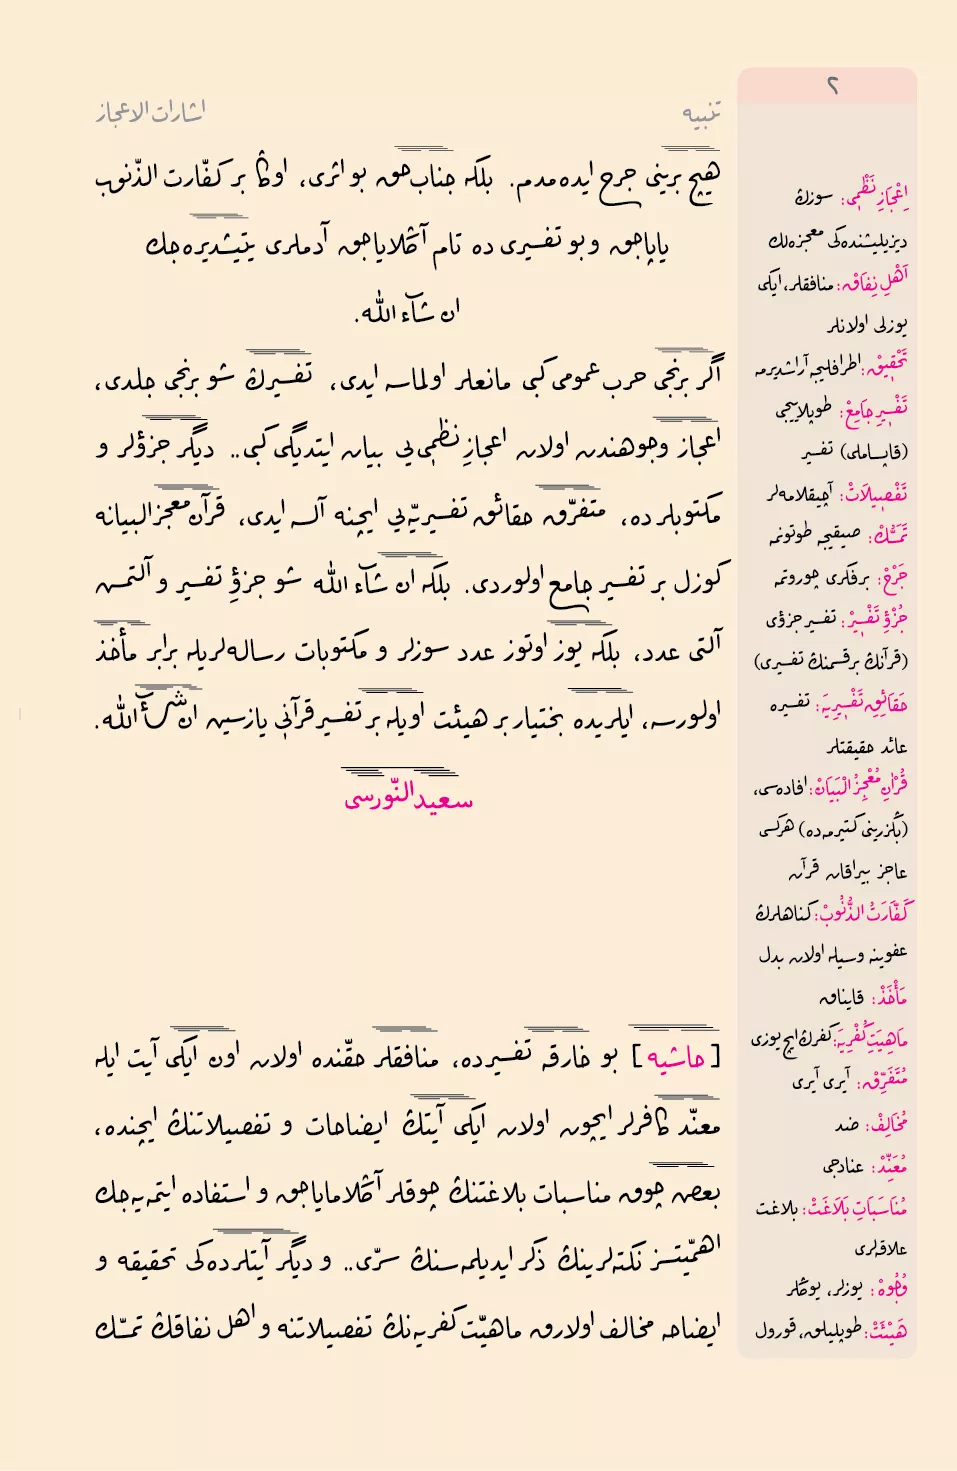 ٢
تنبيه
اشارات الاعجاز
هيچ برينى جرح ايده‌مدم. بلكه جناب حق بو اثرى، اوڭا بر كفّارت الذّنوب
ياپاجق و بو تفسيرى ده تام آڭلاياجق آدملرى يتيشديره‌جك
ان شآء الله.
اگر برنجى حرب عمومى كبى مانعلر اولماسه ايدى، تفسيرڭ شو برنجى جلدى،
اعجاز وجوهندن اولان اعجازِ نظمى‌يى بيان ايتديگى كبى.. ديگر جزؤلر و
مكتوبلر ده، متفرّق حقائق تفسيريّه‌يى ايچنه آلسه ايدى، قرآن معجز البيانه
گوزل بر تفسير جامع اولوردى. بلكه ان شآء الله شو جزؤِ تفسير و آلتمش
آلتى عدد، بلكه يوز اوتوز عدد سوزلر و مكتوبات رساله‌لريله برابر مأخذ
اولورسه، ايلريده بختيار بر هيئت اويله بر تفسير قرآنى يازسين ان شآء الله.
سعيد النّورسى
[حاشيه] بو خارقه تفسيرده، منافقلر حقّنده اولان اون ايكى آيت ايله
معنّد كافرلر ايچون اولان ايكى آيتڭ ايضاحات و تفصيلاتنڭ ايچنده،
بعض چوق مناسبات بلاغتنڭ چوقلر آڭلامایاجق و استفاده ايتمه‌يه‌جك
اهمّيتسز نكته‌لرينڭ ذكر ايديلمه‌سنڭ سرّى.. و ديگر آيتلرده‌كى تحقيقه و
ايضاحه مخالف اولارق ماهيّت كفريه‌نڭ تفصيلاتنه و اهل نفاقڭ تمسّك
اِعْجَازِ نَظْمِى: سوزڭ
ديزيليشنده‌كى معجزه‌لك
اَهْلِ نِفَاقْ: منافقلر، ايكى
يوزلى اولانلر
تَحْقِيقْ: اطرافليجه آراشديرمه
تَفْسِيرِ جَامِعْ: طوپلاييجى
(قاپساملى) تفسير
تَفْصِيلَاتْ: آچيقلامه‌لر
تَمَسُّكْ: صيقيجه طوتونمه
جَرْحْ: بر فكرى چوروتمه
جُزْؤِ تَفْسِيرْ: تفسير جزؤى
(قرآنڭ بر قسمنڭ تفسيرى)
حَقَائِقِ تَفْسِيرِيَه: تفسيره
عائد حقيقتلر
قُرْاٰنِ مُعْجِزُ الْبَيَانْ: افاده‌سى،
(بڭزرينى كتيرمه‌ده) هركسى
عاجز بيراقان قرآن
كَفَّارَتُ الذُّنُوبْ: گناهلرڭ
عفوينه وسيله اولان بدل
مَأْخَذْ: قايناق
مَاهِيَتِ كُفْرِيَه: كفرڭ ايچ يوزى
مُتَفَرِّقْ: آيرى آيرى
مُخَالِفْ: ضد
مُعَنِّدْ: عنادجى
مُنَاسَبَاتِ بَلَاغَتْ: بلاغت
علاقه‌لرى
وُجُوهْ: يوزلر، يوڭلر
هَيْئَتْ: طوپليلق، قورول